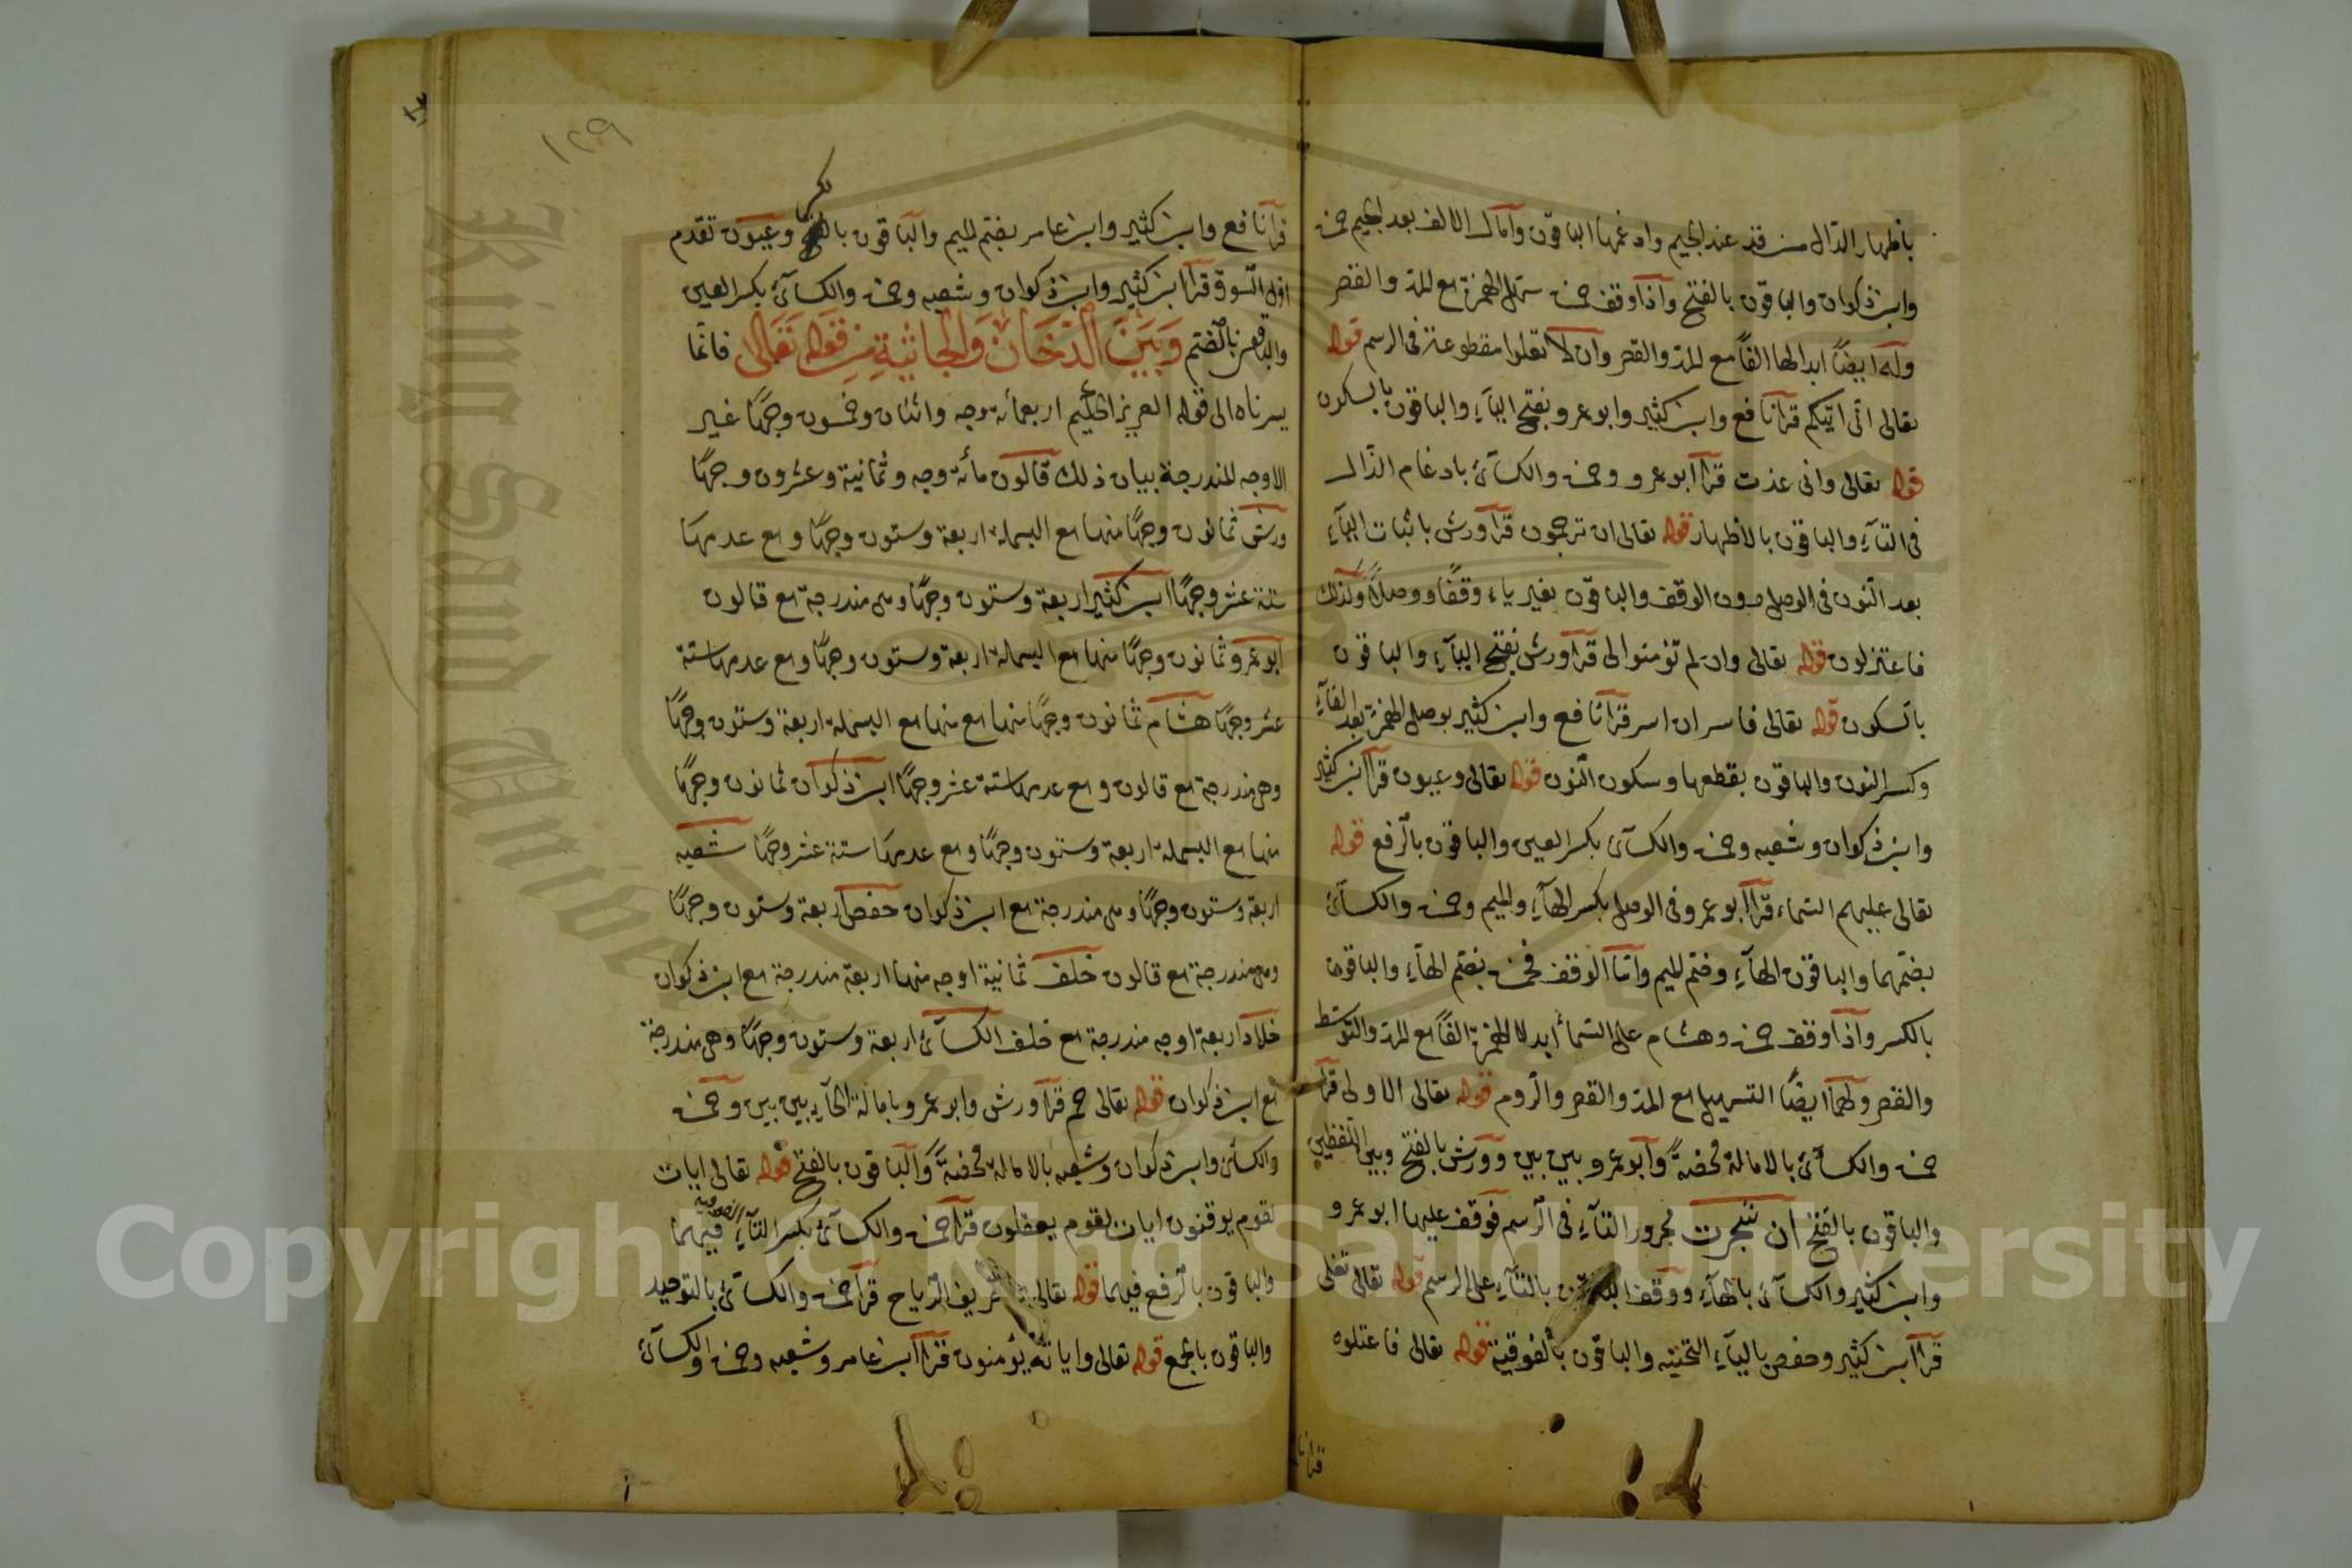 باظهار الدال من قد عند الجيم وادغمها الباقون وامال الالف بعد الجيم حمزة
وابن ذكوان والباقون بالفتح واذا وقف حمزة سهل الهمزة مع المد والقصر
وله ايضًا ابدالها الفًا مع المد والقصر وان لا تعلوا مقطوعة في الرسم قوله
تعالى اني اتيكم قرا نافع وابن كثير وابو عمرو بفتح الياء والباقون بالسكون
قوله تعالى واني عذت قرا ابو عمرو وحمزة والكسآئ بادغام الذال
في التآء والباقون بالاظهار قوله تعالى ان ترجمون قرا ورش باثبات اليآء
بعد النون في الوصل دون الوقف والباقون بغير ياء وقفًا ووصلًا وكذلك
فاعتزلون قوله تعالى وان لم تؤمنوا لى قرا ورش بفتح اليآء والباقون
بالسكون قوله تعالى فاسر ان اسر قرا نافع وابن كثير بوصل الهمزة بعد الفآء
وكسر النون والباقون بقطعها وسكون النون قوله تعالى وعيون قرا ابن كثير
وابن ذكوان وشعبه وحمزة والكسآئ بكسر العين والباقون بالرفع قوله
تعالى عليهم السماء قرا ابو عمرو في الوصل بكسر الهآء والميم وحمزة والكسآئ
بضمهما والباقون الهآء وضم الميم واما الوقف فحمزة بضم الهآء والباقون
بالكسر واذا وقف حمزة وهشام على السماء ابدلا الهمزة الفًا مع المد والتوسط
والقصر ولهما ايضًا التسهيل مع المد والقصر والروم قوله تعالى الاولى قرا
حمزة والكسآئ بالامالة محضةً وابو عمرو بين بين وورش بالفتح وبين اللفظين
والباقون بالفتح ان شجرت مجرور التآء في الرسم فوقف عليها ابو عمرو
وابن كثير والكسآئ بالهآء ووقف الباقون بالتآء على الرسم قوله تعالى تغلى
قرا ابن كثير وحفص باليآء التحتيه والباقون بالفوقية قوله تعالى فاعتلوه
قرا نا
١٢٩
قرا نافع وابن كثير وابن عامر بضم الميم والباقون بالكسر وعيون تقدم
اول السورة قرا ابن كثير وابن ذكوان وشعبه وحمزة والكسآئ بكسر العين
والباقون بالضم وَبَيْنَ الدُّخَانِ وَالجَاثِيَةِ مِنْ قَوْلِهِ تَعَالى فانما
يسرناه الى قوله العزيز الحكيم اربعمائة وجه واثنان وخمسون وجهًا غير
الاوجه المندرجة بيان ذلك قالون مائة وجه وثمانية وعشرون وجهًا
ورش ثمانون وجهًا منها مع البسملة اربعة وستون وجهًا ومع عدمها
ستة عشر وجهًا ابن كثير اربعة وستون وجهًا وهى مندرجة مع قالون
ابو عمرو ثمانون وجهًا منها مع البسملة اربعة وستون وجهًا ومع عدمها ستة
عشر وجهًا هشام ثمانون وجهًا منها مع منها مع البسملة اربعة وستون وجهًا
وهى مندرجة مع قالون ومع عدمها ستة عشر وجهًا ابن ذكوان ثمانون وجهًا
منها مع البسملة اربعة وستون وجهًا ومع عدمها ستة عشر وجهًا شعبه
اربعة وستون وجهًا وهى مندرجة مع ابن ذكوان حفص اربعة وستون وجهًا
وهى مندرجة مع قالون خلف ثمانية اوجه منها اربعة مندرجة مع ابن ذكوان
خلاد اربعة اوجه مندرجة مع خلف الكسآئ اربعة وستون وجهًا وهى مندرجة
مع ابن ذكوان قوله تعالى حم قرا ورش وابو عمرو بامالة الحآء بين بين وحمزة
والكسائ وابن ذكوان وشعبه بالامالة محضةً والباقون بالفتح قوله تعالى ايات
لقوم يوقنون ايات لقوم يعقلون قرا حمزة والكسآئ بكسر التآء فيهما
والباقون بالرفع فيهما قوله تعالى تصريف الرياح قرا حمزة والكسآئ بالتوحيد
والباقون بالجمع قوله تعالى واياته يؤمنون قرا ابن عامر وشعبه وحمزة والكسآئ
King Saud Unive
Copyright © King Saud University